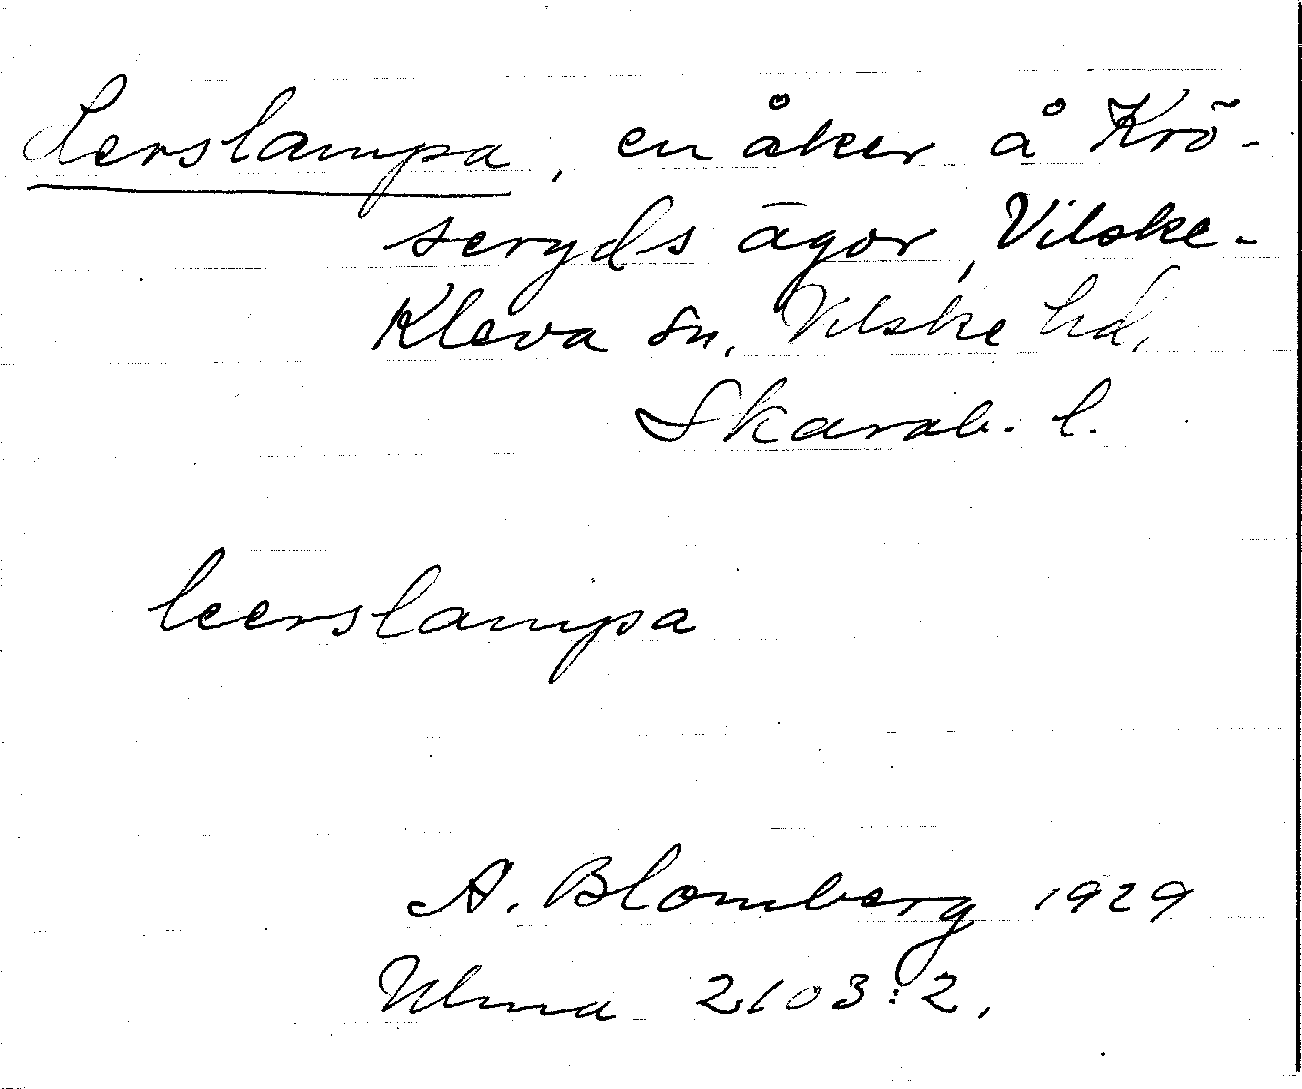 Lerslampa, en åker å Krö-
seryds ägor, Vilske-
Kleva sn, Vilske hd,
Skarab. l.
leerslampa
A. Blomberg 1929
Ulma 2103:2.